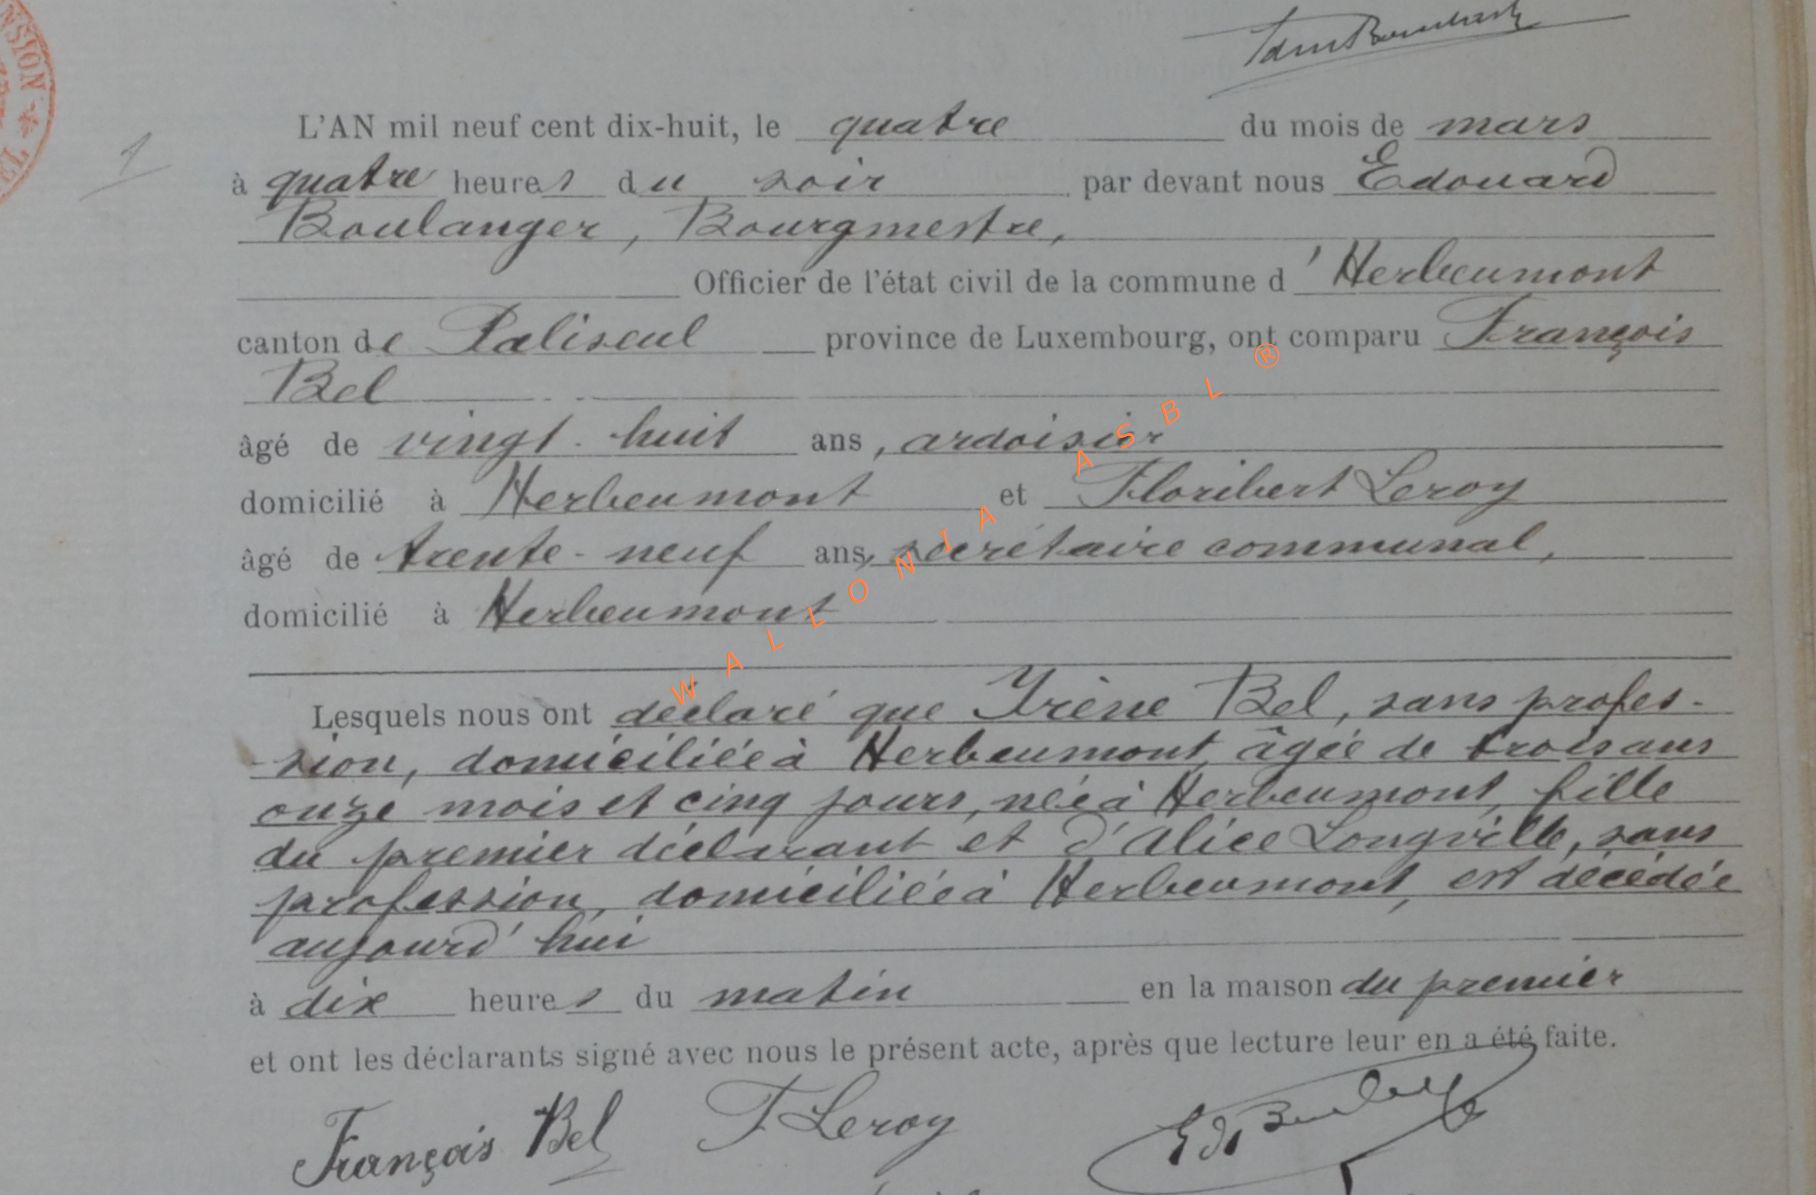 NSION *
L'AN mil neuf cent dix-huit, le quatre du mois de mars
1
à quatre heures du soir par devant nous Edouard
Boulanger, Bourgmestre,
Officier de l'état civil de la commune d'Herbeumont
canton de Paliseul province de Luxembourg, ont comparu François
Bel
âgé de vingt-huit ans, ardoisier
domicilié à Herbeumont et Floribert Leroy
âgé de trente-neuf ans, secrétaire communal,
domicilié à Herbeumont
WALLONIA ASBL ®
Lesquels nous ont déclaré que Irène Bel, sans profes-
sion, domiciliée à Herbeumont, âgée de trois ans
onze mois et cinq jours, née à Herbeumont, fille
du premier déclarant et d'Alice Longville, sans
profession, domiciliée à Herbeumont, est décédée
aujourd'hui
à dix heures du matin en la maison du premier
et ont les déclarants signé avec nous le présent acte, après que lecture leur en a été faite.
François Bel F Leroy